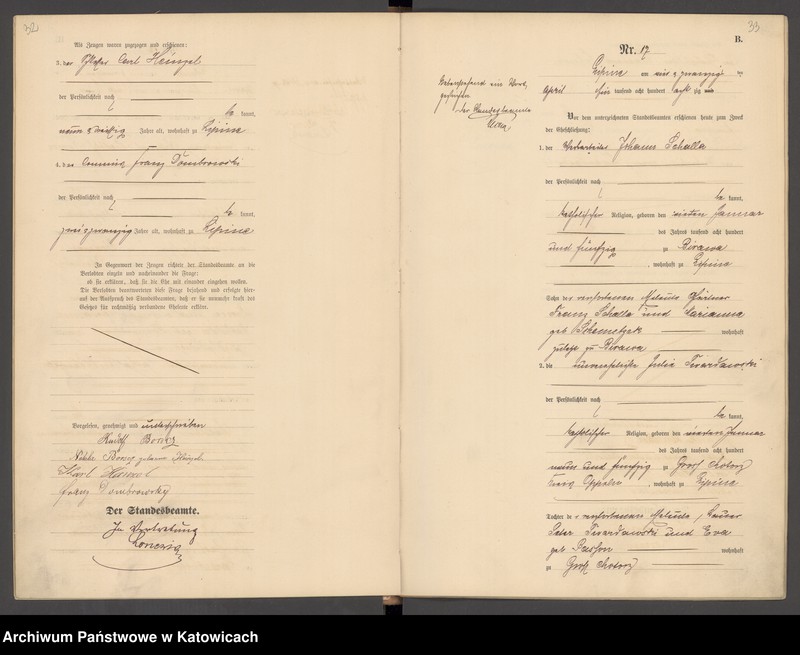 32
Als Zeugen waren zugezogen und erschienen:
3. der Carl Heinzel
der Persönlichkeit nach
be kannt,
neun u dreißig Jahre alt, wohnhaft zu Lipine
4. der Commis Franz Dombrowski
der Persönlichkeit nach
be kannt,
zweiundzwanzig Jahre alt, wohnhaft zu Lipine
In Gegenwart der Zeugen richtete der Standesbeamte an die
Verlobten einzeln und nacheinander die Frage:
ob sie erklären, daß sie die Ehe mit einander eingehen wollen.
Die Verlobten beantworteten diese Frage bejahend und erfolgte hier-
auf der Ausspruch des Standesbeamten, daß er sie nunmehr kraft des
Gesetzes für rechtmäßig verbundene Eheleute erkläre.
Vorgelesen, genehmigt und unterschrieben
Rudolf
geborne Heinzel
Karl
Franz Dombrowsky
Der Standesbeamte.
In Vertretung
33
B.
Nr. 17
Lipine am ein u zwanzig ten
April ein tausend acht hundert acht zig
Vor dem unterzeichneten Standesbeamten erschienen heute zum Zweck
der Eheschließung:
1. der Johann Schalla
der Persönlichkeit nach
be kannt,
katholischer Religion, geboren den Januar
des Jahres tausend acht hundert
und fünfzig zu Birawa
, wohnhaft zu Lipine
Sohn des verstorbenen Gärtner
Franz Schalla und Marianna
geb wohnhaft
zuletzt zu Birawa
2. die unverehelichte Julie Twardawski
der Persönlichkeit nach
be kannt,
katholischer Religion, geboren den Januar
des Jahres tausend acht hundert
neun und fünfzig zu Groß Kotorz
Kreis Oppeln , wohnhaft zu Lipine
Tochter der verstorbenen
Peter Twardawski und Eva
geb wohnhaft
zu Groß Kotorz
Der Standesbeamte
Archiwum Państwowe w Katowicach